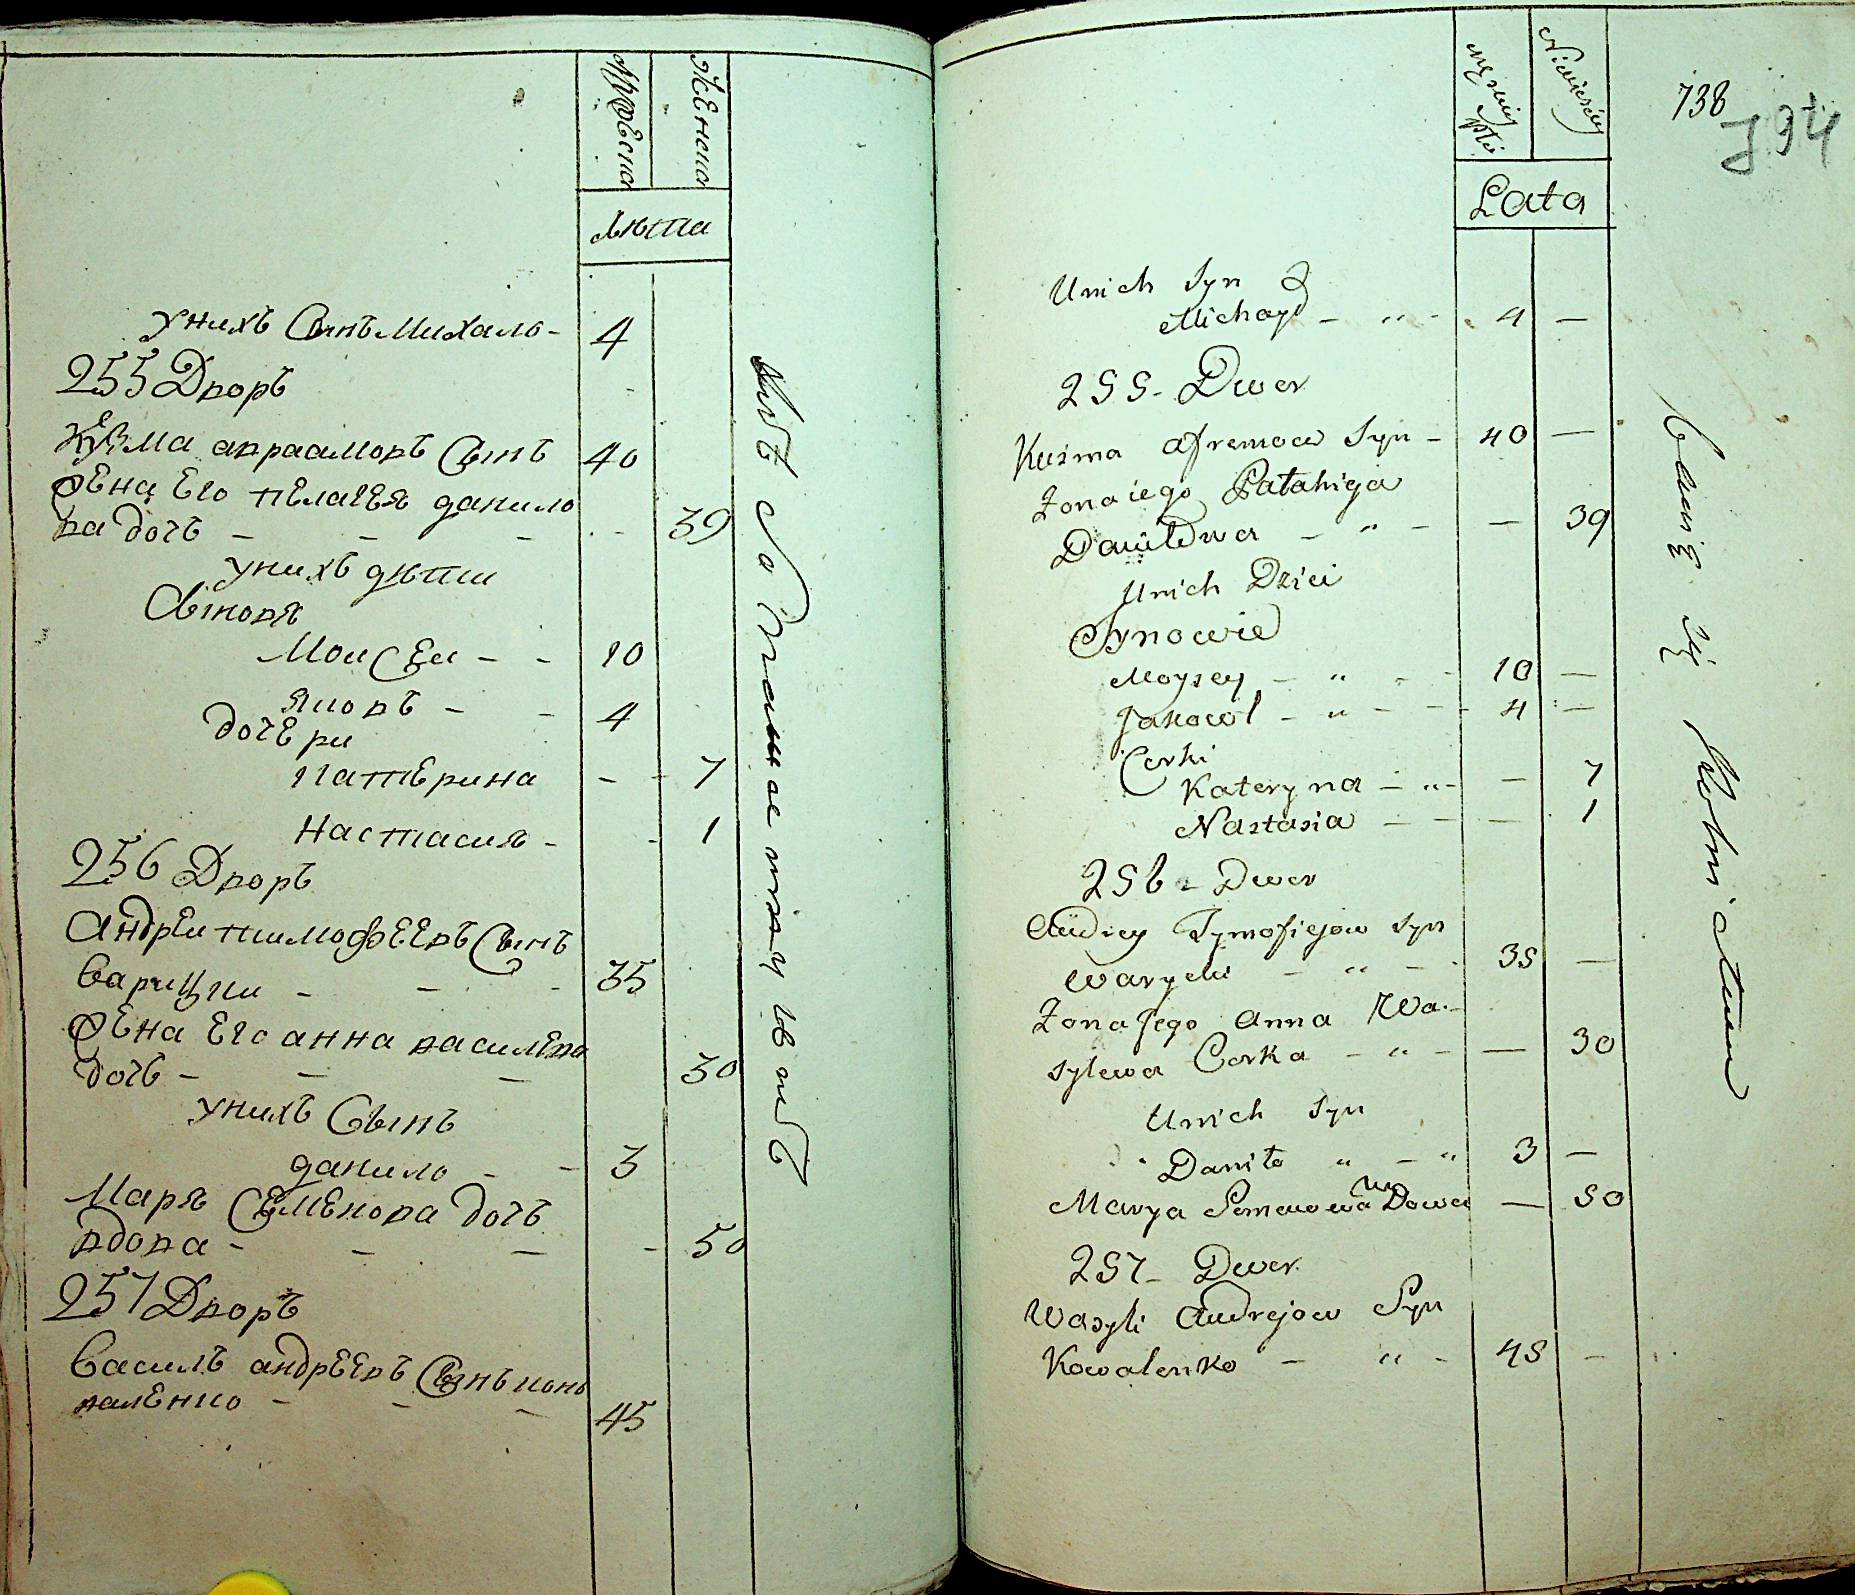 мужеска
женска
лѣта
у нихъ сынъ михало - 4
255 Дворъ
Кузма авраамовъ сынъ 40
жена его пелагея данило
ва дочь - - - 39
у нихъ дѣти
Сыновя
Моисеи - - 10
Яковъ - - 4
дочери
Катерина - - 7
Настасия - - 1
256 Дворъ
Андреи тимофеевъ сынъ
Варицки - - - 35
жена его анна василева
дочь - - - 30
у нихъ сынъ
данило - - 3
Маря Семенова дочь
вдова - - - - 50
257 Дворъ
Василь андреевъ сынъ кова
валенко - - - 45
738
794
męskiey płci
Niewieściey
Lata
Unich Syn
Michaył - " - 4 -
255 - Dwor
Kuśma afremow Syn - 40 -
Żona iego Patahija
Daniłowa - " - - 39
Unich Dzieci
Synowie
Moysey - " - - 10 -
Jakowl - " - - - 4 -
Corki
Kateryna - " - - 7
Nastasia - - - 1
256 - Dwor
Andrey Tymofiejow Syn
Warycki - " - - 35 -
Żona Jego Anna Wa-
sylewa Corka - " - - 30
Unich Syn
Daniło " - " 3 -
Marya Semenowa Wdowa - 50
257 - Dwor
Wasyli Andrejow Syn
Kowalenko - " - 45 -